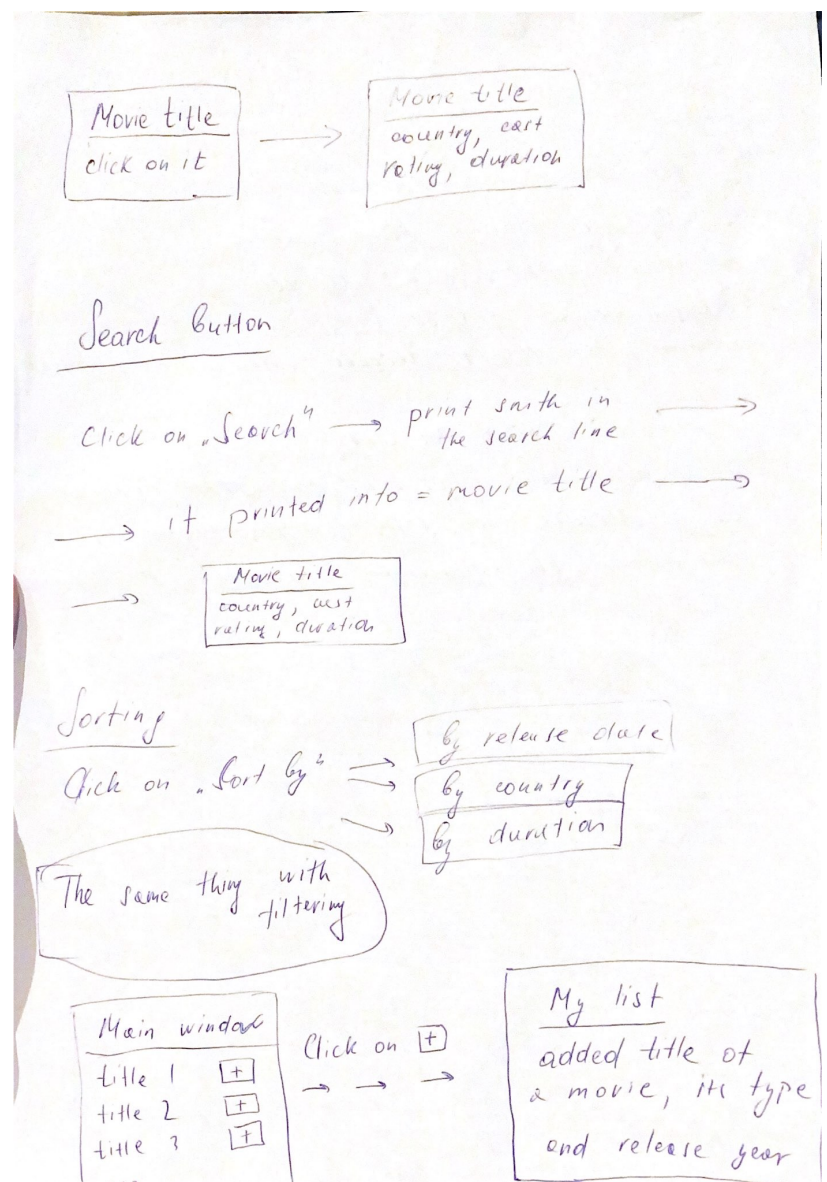 Movie title
click on it
Movie title
country, cast
rating, duration
Search button
Click on „Search" → print smth in
the search line →
→ it printed into = movie title →
→ Movie title
country, cast
rating, duration
Sorting
Click on „Sort by"
by release date
by country
by duration
The same thing with
filtering
Main window
title 1 +
title 2 +
title 3 +
Click on +
My list
added title of
a movie, its type
and release year